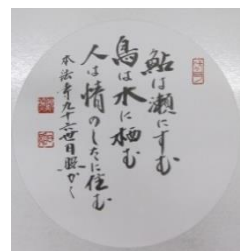 鮎は瀬にすむ
鳥は水に栖む
人は情のしたに住む
本法寺九十六世日照かく